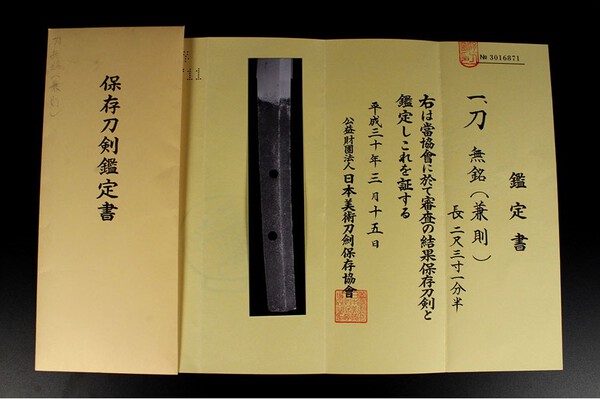 保存刀剣鑑定書
№ 3016871
鑑定書
一、刀 無銘(兼則)
長 二尺三寸一分半
右は當協會に於て審査の結果保存刀剣と
鑑定しこれを証する
平成三十年三月十五日
公益財團法人 日本美術刀剣保存協會